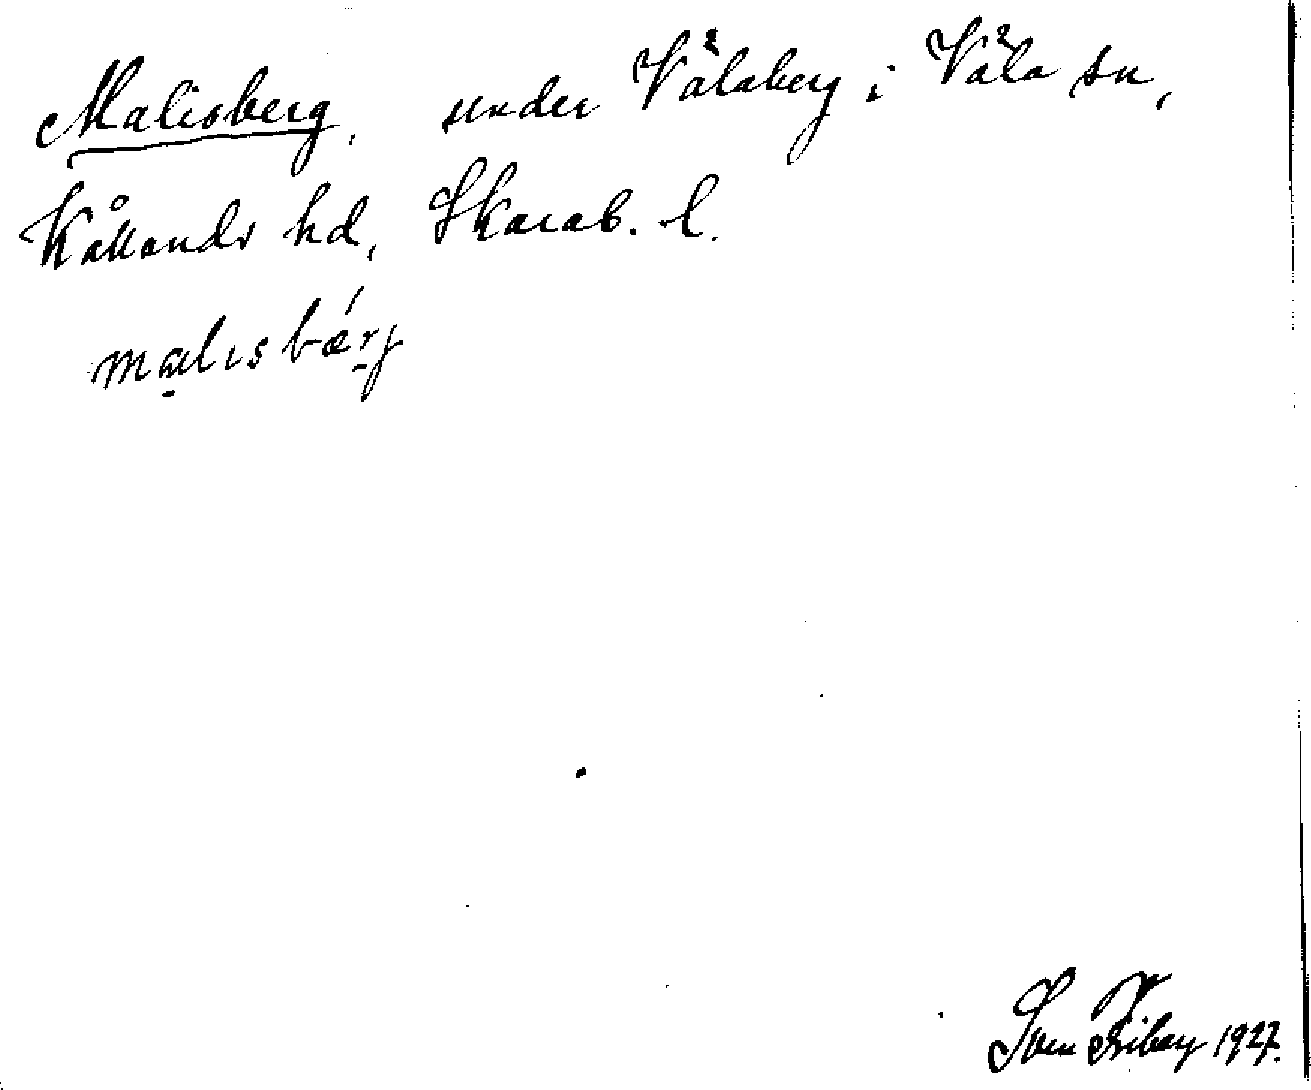 Malisberg, under Vålaberg i Våla sn,
Kållands hd, Skarab. l.
malisbǽrj
Sven Friberg 1927.